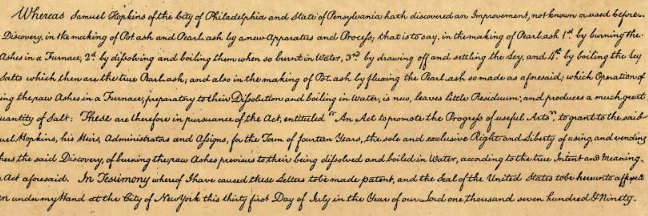 Whereas Samuel Hopkins of the City of Philadelphia and State of Pensylvania hath discovered an Improvement, not known or used before
Discovery, in the making of Pot ash and Pearl ash by a new Apparatus and Process, that is to say, in the making of Pearl ash 1st. by burning the
Ashes in a Furnace, 2d. by dissolving and boiling them when so burnt in Water, 3rd. by drawing off and settling the Ley, and 4th. by boiling the Ley
Salts which then are the true Pearl ash; and also in the making of Pot ash by fluxing the Pearl ash so made as aforesaid; which Operation of
ing the raw Ashes in a Furnace, preparatory to their Dissolution and boiling in Water, is new, leaves little Residuum; and produces a much great
uantity of Salt: These are therefore in pursuance of the Act, entituled "An Act to promote the Progress of useful Arts", to grant to the said
uel Hopkins, his Heirs, Administrators and Assigns, for the Term of fourteen Years, the sole and exclusive Right and Liberty of using and vending
hers the said Discovery, of burning the raw Ashes previous to their being dissolved and boiled in Water, according to the true Intent and Meaning
Act aforesaid. In Testimony whereof I have caused these Letters to be made patent, and the Seal of the United States to be hereunto affixed
en under my Hand at the City of New York this thirty first Day of July in the Year of our Lord one thousand seven hundred & Ninety.